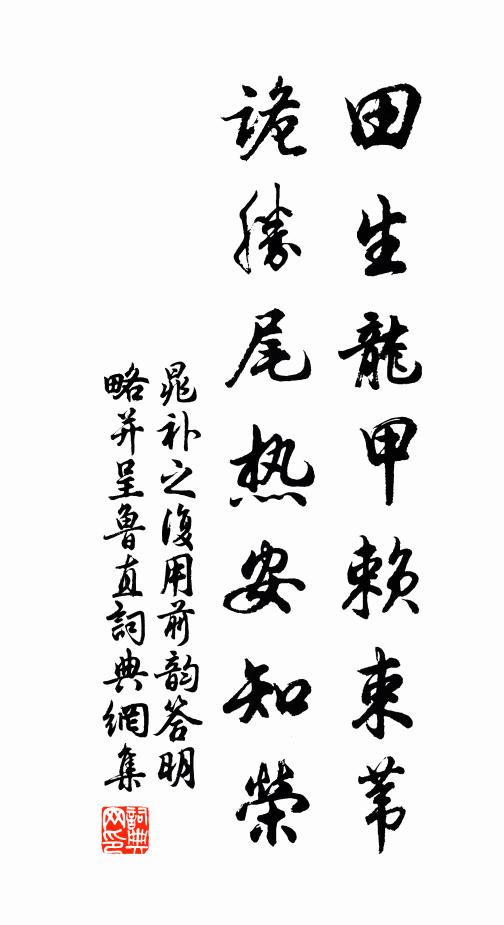 田生龍甲賴束葦
詭勝尾热安知榮
晁补之復用前韵答明
略并呈魯直詞典網集
詞典网印